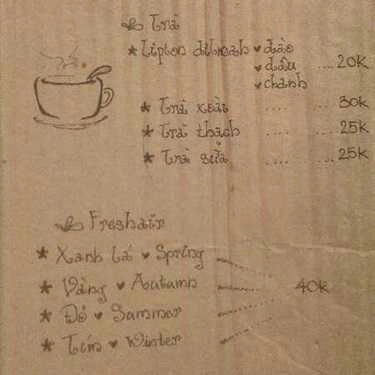 Trà
* Lipton dilmah ♥ đào
♥ dâu .... 20K
♥ chanh
* Trà xoài .... .... 30K
* Trà thạch .... .... 25K
* Trà sữa .... .... 25K
Freshair
* Xanh lá ♥ Spring
* Vàng ♥ Autumn
40K
* Đỏ ♥ Summer
* Tím ♥ Winter